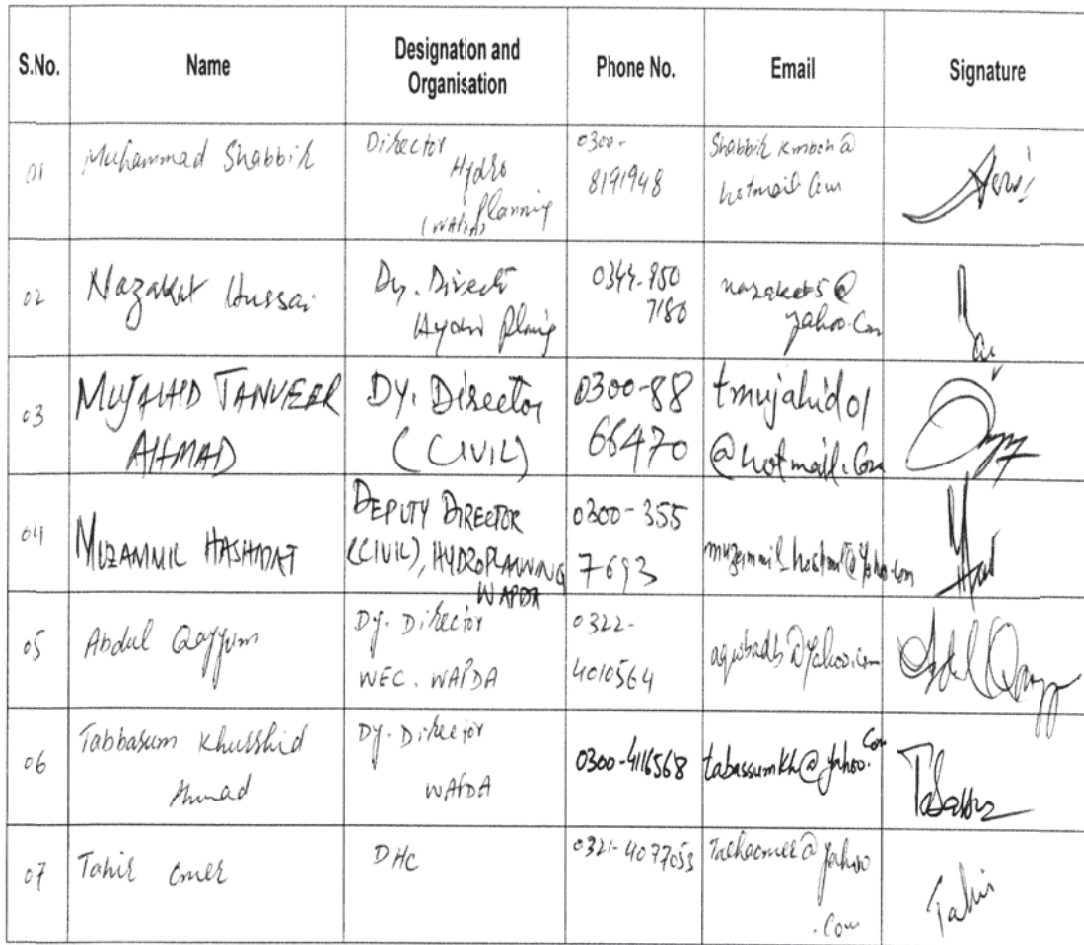 S.No.
Name
Designation and
Organisation
Phone No.
Email
Signature
01
Muhammad Shabbir
Director
Hydro
Planning
(WAPDA)
0300-
8191948
hotmail Com
02
Nazakat Hussai
Dy. Direct
0344-950
7180
yahoo.Com
03
MUJAHID TANVEER
AHMAD
DY. Director
(CIVIL)
0300-88
66470
tmujahid01
@hotmail.Com
04
MUZAMMIL HASHMAT
DEPUTY DIRECTOR
(CIVIL), HYDROPLANNING
WAPDA
0300-355
7693
05
Abdul Qayyum
Dy. Director
WEC. WAPDA
0322-
4010564
06
Tabbasum Khurshid
Ahmad
Dy. Director
WAPDA
0300-4116568
tabassumkh@yahoo.Com
07
Tahir Omer
DHC
0321-4077053
.Com
Tahir